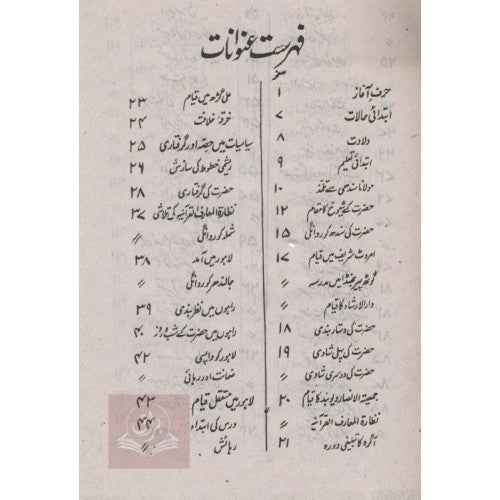 فہرست عنوانات
صفحہ
حرفِ آغاز ۱
ابتدائی حالات ۷
ولادت ۸
ابتدائی تعلیم ۹
مولانا سندھی سے تلمذ ۱۰
حضرت کے شیوخ کا مقام ۱۲
حضرت کی سندھ کو روانگی ۱۵
امروٹ شریف میں قیام ۱۷
گوٹھ پیر جھنڈا میں مدرسہ 〃
دارالارشاد کا قیام
حضرت کی دستار بندی ۱۸
حضرت کی پہلی شادی ۱۹
حضرت کی دوسری شادی 〃
جمعیۃ الانصار دیوبند کا قیام ۲۰
نظارۃ المعارف القرآنیہ 〃
آگرہ کا تبلیغی دورہ ۲۱
علی گڑھ میں قیام ۲۳
خرقۂ خلافت ۲۴
سیاسیات میں حصہ اور گرفتاری ۲۵
ریشمی خطوط کی سازش ۲۶
حضرت کی گرفتاری ۲۸
نظارۃ المعارف القرآنیہ کی تلاشی ۳۷
شملہ کو روانگی 〃
لاہور میں آمد ۳۸
جالندھر کو روانگی 〃
راہوں میں نظر بندی ۳۹
راہوں میں حضرت کے شب و روز ۴۰
لاہور کو واپسی ۴۲
ضمانت اور رہائی 〃
لاہور میں مستقل قیام ۴۳
درس کی ابتداء ۴۴
رہائش 〃